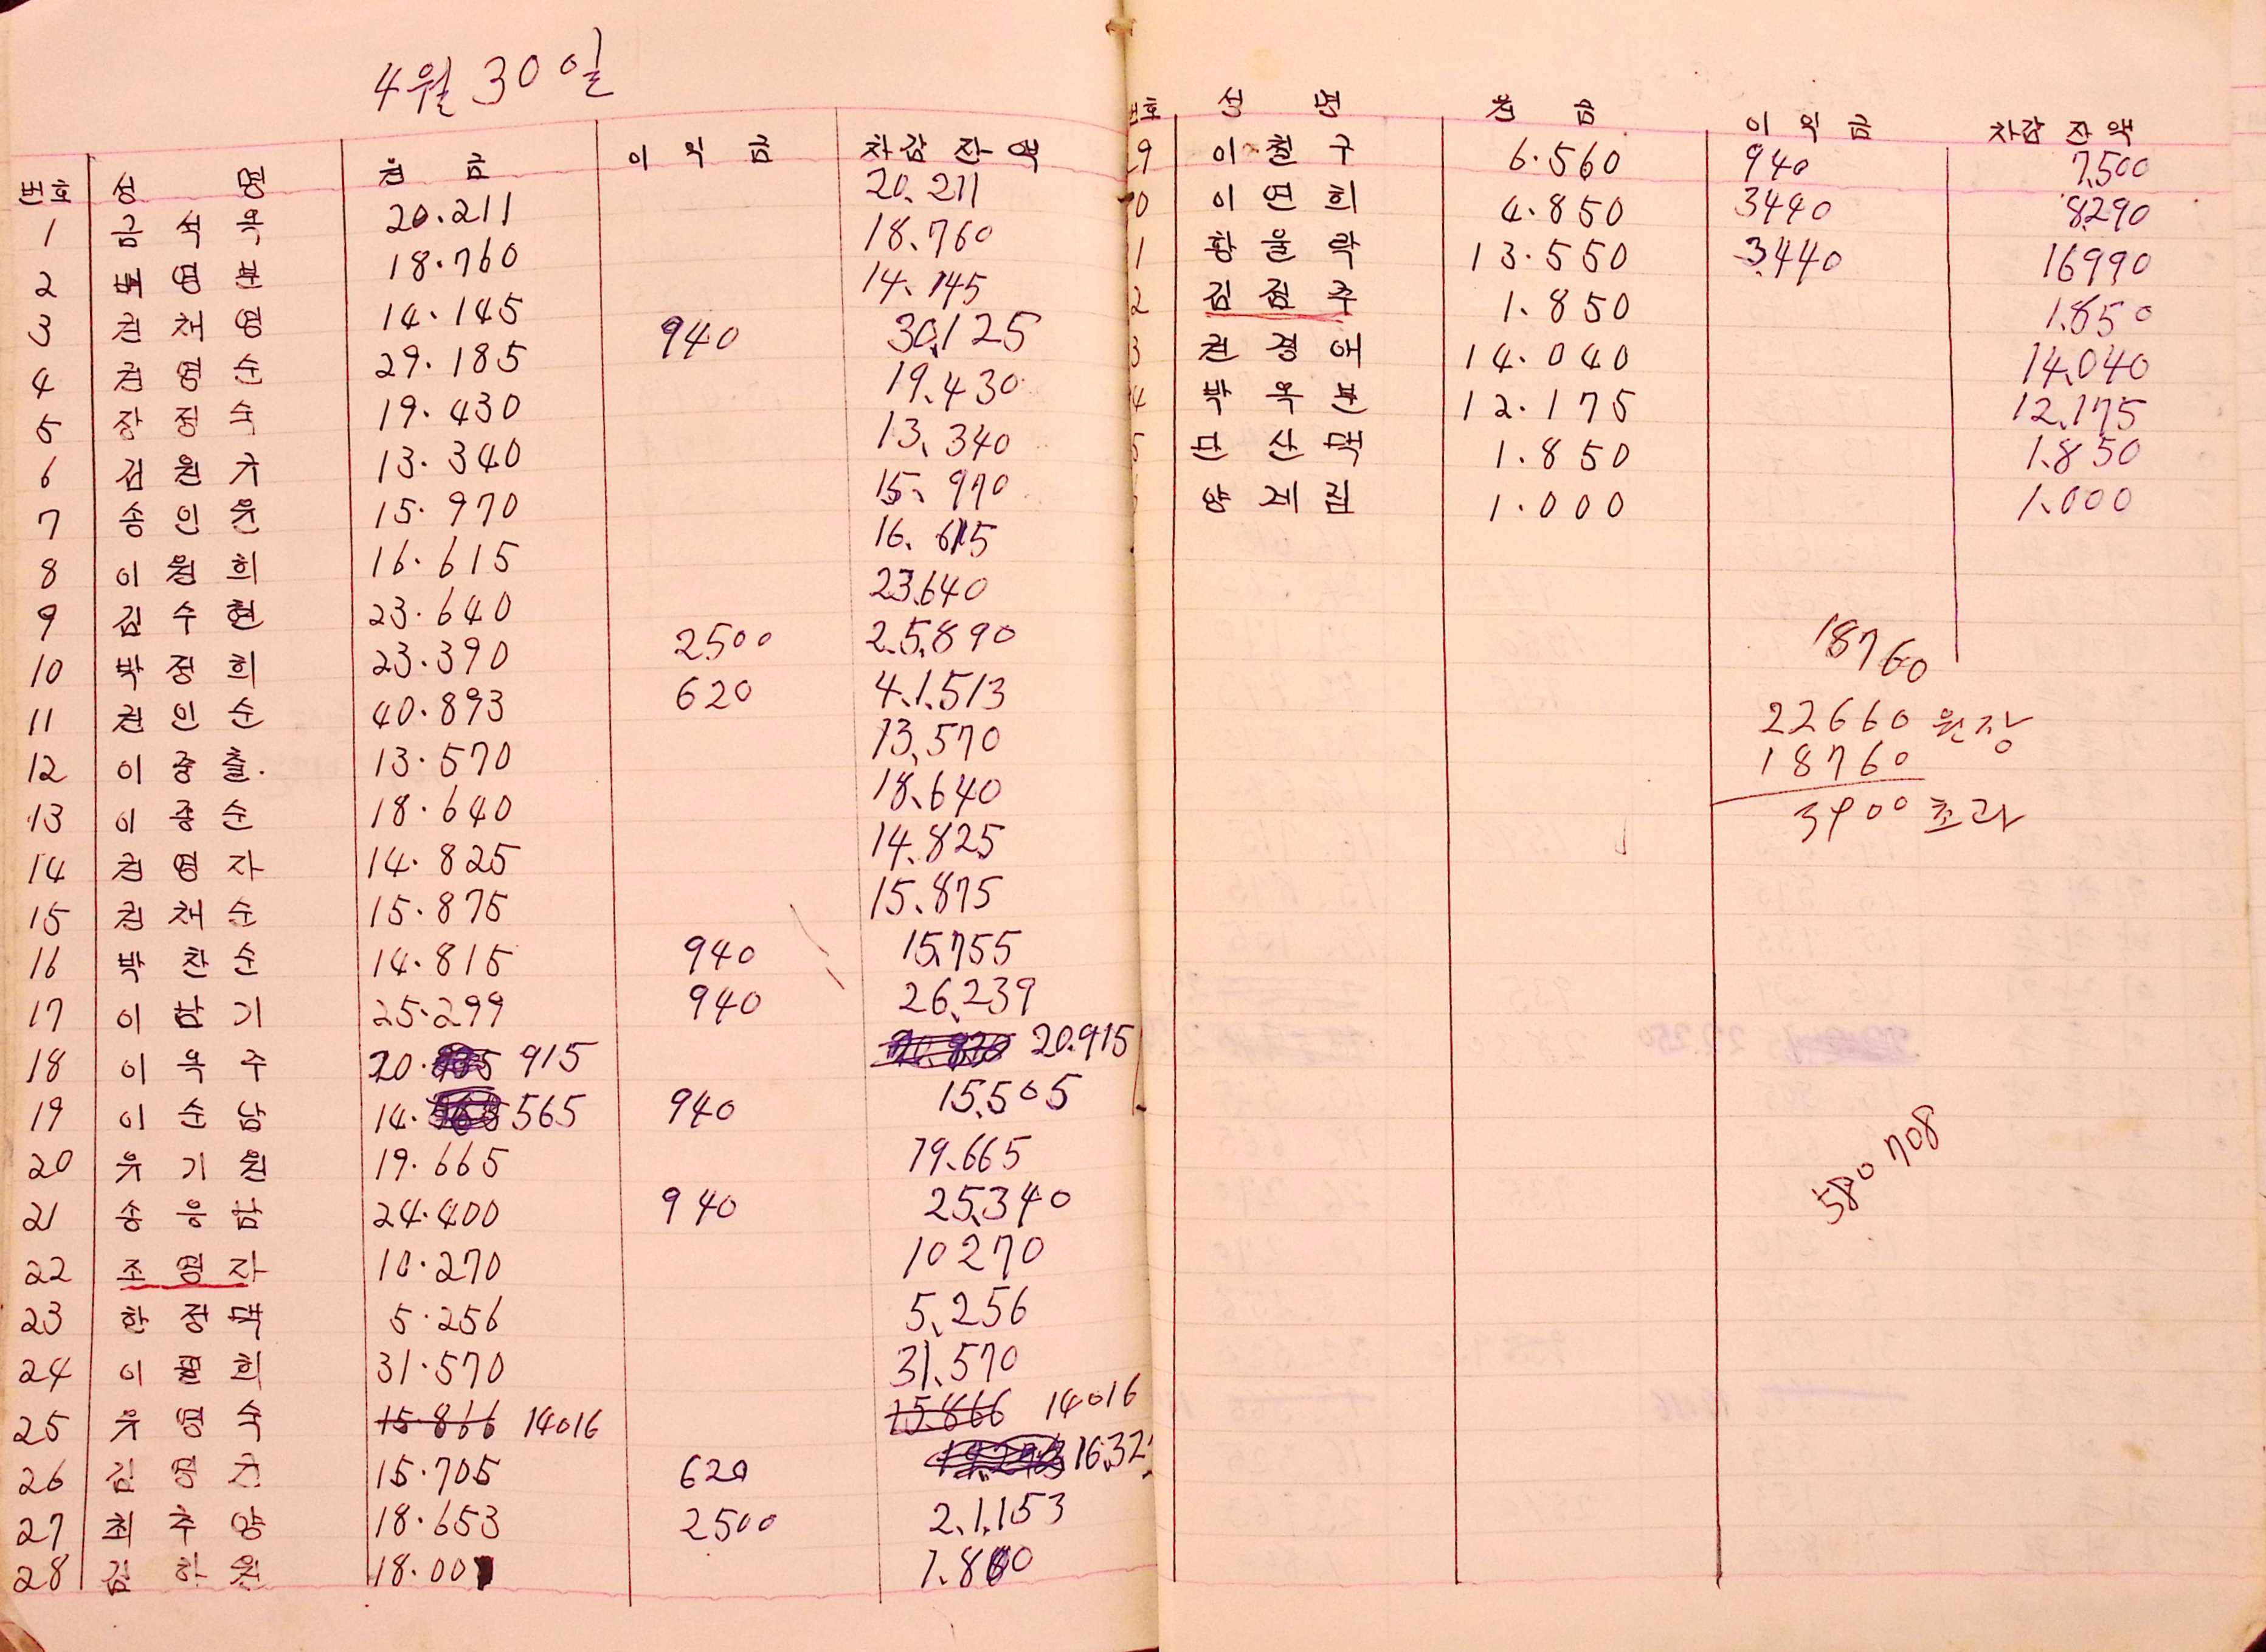 4월 30일
번호 성 명 원 금 이 익 금 차감 잔액
1 금석옥 20.211 20.211
2 백영분 18.760 18.760
3 권채영 14.145 14.145
4 권영순 29.185 940 30,125
5 장정숙 19.430 19.430
6 김원규 13.340 13.340
7 송인윤 15.970 15.970
8 이원희 16.615 16.615
9 김수현 23.640 23.640
10 박정희 23.390 2500 25,890
11 권인순 40.893 620 41,513
12 이종출. 13.570 13,570
13 이종순 18.640 18.640
14 권영자 14.825 14.825
15 권채순 15.875 15.875
16 박찬순 14.815 940 15,755
17 이남기 25.299 940 26,239
18 이옥주 20. 915 20.915
19 이순남 14. 565 940 15,505
20 우기원 19.665 19.665
21 송응남 24.400 940 25,340
22 조영자 10.270 10270
23 한정댁 5.256 5,256
24 이필희 31.570 31.570
25 우영숙 15.866 14016 15.866 14016
26 김영근 15.705 620 16,32
27 최추양 18.653 2500 21,153
28 김하원 18.00 1.880
번호 성 명 원 금 이 익 금 차감 잔액
9 이철구 6.560 940 7,500
0 이연희 4.850 3440 8290
1 황윤락 13.550 3,440 16990
2 김점주 1.850 1.850
3 권경애 14.040 14,040
4 박옥분 12.175 12,175
5 단산댁 1.850 1.850
양재림 1.000 1.000
18760
22660 원장
18760
3900 초과
580 708